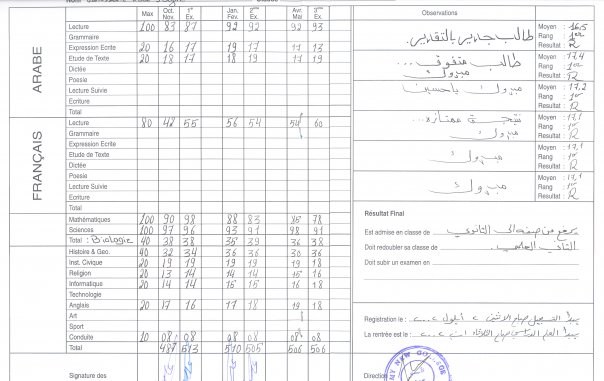 Max Oct. Nov. 1° Ex. Jan. Fev. 2ème Ex. Avr. Mai 3ème Ex. Observations
ARABE
Lecture 100 83 87 92 92 92 93
Grammaire
Expression Ecrite 20 16 17 19 17 17 13
Etude de Texte 20 18 17 18 19 17 19
Dictée
Poesie
Lecture Suivie
Ecriture
Total
FRANÇAIS
Lecture 80 48 55 56 54 54 60
Grammaire
Expression Ecrite
Etude de Texte
Dictée
Poesie
Lecture Suivie
Ecriture
Total
Mathématiques 100 90 98 88 83 85 78
Sciences 100 97 96 93 91 98 91
Total : Biologie 40 38 38 35 39 36 38
Histoire & Geo. 40 32 34 36 36 30 36
Inst. Civique 20 19 19 19 19 19 18
Religion 20 13 14 14 14 15 16
Informatique 20 14 14 15 15 16 18
Technologie
Anglais 20 17 16 17 18 19 18
Art
Sport
Conduite 10 08 08 08 08 08 08
Total 487 513 510 505 506 506
Signature des
طالب جدير بالتقدير.
Moyen : 16,5
Rang : 1er
Resultat : R
طالب متفوق...
مبروك
Moyen : 17,4
Rang : 1er
Resultat : R
مبروك يا حسين
Moyen : 17,2
Rang : 1er
Resultat : R
نتيجة ممتازة...
مبروك
Moyen : 17,1
Rang : 1er
Resultat : R
مبروك
Moyen : 17,1
Rang : 1er
Resultat : R
مبروك
Moyen : 17,1
Rang : 1er
Resultat : R
Résultat Final
Est admise en classe du يرفع من صفه الى الثانوي
Doit redoubler sa classe de الثاني العلمي.
Doit subir un examen en
Registration le : يبدأ التسجيل صباح الاثنين ٢ أيلول ٢٠٠٢
La rentrée est le : يبدأ العام الدراسي صباح الثلاثاء
Direction
MY NEW COLLEGE